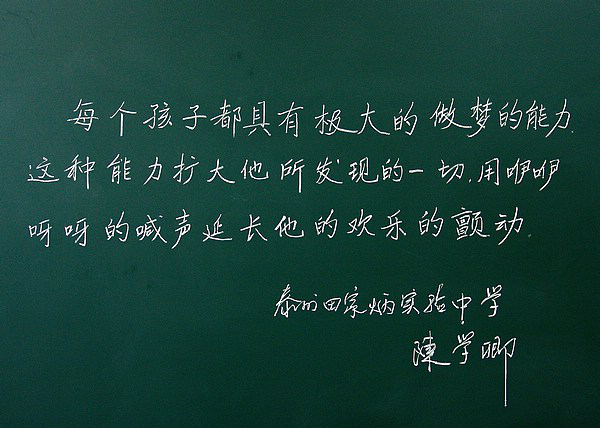 每个孩子都具有极大的做梦的能力.
这种能力扩大他所发现的一切.用咿咿
呀呀的喊声延长他的欢乐的颤动.
泰州田家炳实验中学
陳学卿